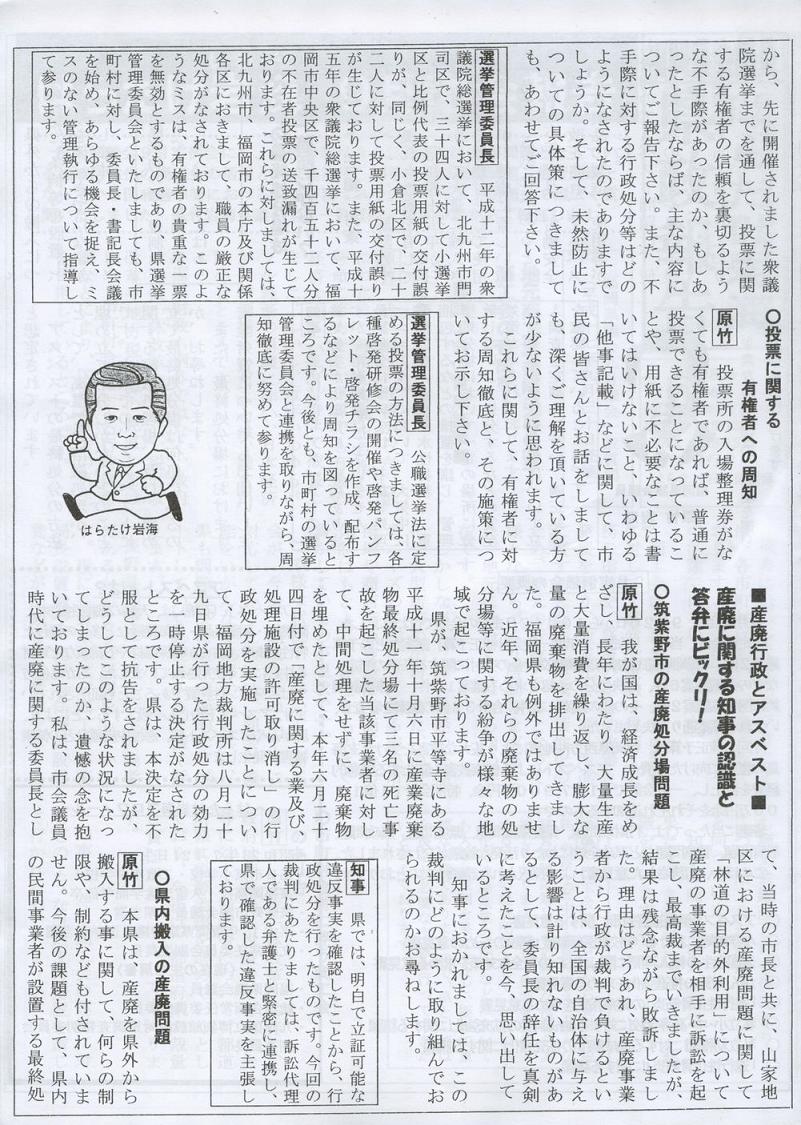 から、先に開催されました衆議
院選挙までを通して、投票に関
する有権者の信頼を裏切るよう
な不手際があったのか、もしあ
ったとしたならば、主な内容に
ついてご報告下さい。また、不
手際に対する行政処分等はどの
ようになされたのでありますで
しょうか。そして、未然防止に
ついての具体策につきまして
も、あわせてご回答下さい。
選挙管理委員長　平成十二年の衆
議院総選挙において、北九州市門
司区で、三十四人に対して小選挙
区と比例代表の投票用紙の交付誤
りが、同じく、小倉北区で、二十
二人に対して投票用紙の交付誤り
が生じております。また、平成十
五年の衆議院総選挙において、福
岡市中央区で、千四百五十二人分
の不在者投票の送致漏れが生じて
おります。これらに対しましては、
北九州市、福岡市の本庁及び関係
各区におきまして、職員の厳正な
処分がなされております。このよ
うなミスは、有権者の貴重な一票
を無効とするものであり、県選挙
管理委員会といたしましても、市
町村に対し、委員長・書記長会議
を始め、あらゆる機会を捉え、ミ
スのない管理執行について指導し
て参ります。
○投票に関する
有権者への周知
原竹　投票所の入場整理券がな
くても有権者であれば、普通に
投票できることになっているこ
とや、用紙に不必要なことは書
いてはいけないこと、いわゆる
「他事記載」などに関して、市
民の皆さんとお話をしまして
も、深くご理解を頂いている方
が少ないように思われます。
これらに関して、有権者に対
する周知徹底と、その施策につ
いてお示し下さい。
選挙管理委員長　公職選挙法に定
める投票の方法につきましては、各
種啓発研修会の開催や啓発パンフ
レット・啓発チラシを作成、配布す
るなどにより周知を図っていると
ころです。今後とも、市町村の選挙
管理委員会と連携を取りながら、周
知徹底に努めて参ります。
はらたけ岩海
■産廃行政とアスベスト■
産廃に関する知事の認識と
答弁にビックリ！
○筑紫野市の産廃処分場問題
原竹　我が国は、経済成長をめ
ざし、長年にわたり、大量生産
と大量消費を繰り返し、膨大な
量の廃棄物を排出してきまし
た。福岡県も例外ではありませ
ん。近年、それらの廃棄物の処
分場等に関する紛争が様々な地
域で起こっております。
県が、筑紫野市平等寺にある
平成十一年十月六日に産業廃棄
物最終処分場にて三名の死亡事
故を起こした当該事業者に対し
て、中間処理をせずに、廃棄物
を埋めたとして、本年六月二十
四日付で「産廃に関する業及び、
処理施設の許可取り消し」の行
政処分を実施したことについ
て、福岡地方裁判所は八月二十
九日県が行った行政処分の効力
を一時停止する決定がなされた
ところです。県は、本決定を不
服として抗告をされましたが、
どうしてこのような状況になっ
てしまったのか、遺憾の念を抱
いております。私は、市会議員
時代に産廃に関する委員長とし
て、当時の市長と共に、山家地
区における産廃問題に関して
「林道の目的外利用」について
産廃の事業者を相手に訴訟を起
こし、最高裁までいきましたが、
結果は残念ながら敗訴しまし
た。理由はどうあれ、産廃事業
者から行政が裁判で負けるとい
うことは、全国の自治体に与え
る影響は計り知れないものがあ
るとして、委員長の辞任を真剣
に考えたことを今、思い出して
いるところです。
知事におかれましては、この
裁判にどのように取り組んでお
られるのかお尋ねします。
知事　県では、明白で立証可能な
違反事実を確認したことから、行
政処分を行ったものです。今回の
裁判にあたりましては、訴訟代理
人である弁護士と緊密に連携し、
県で確認した違反事実を主張し
ております。
○県内搬入の産廃問題
原竹　本県は、産廃を県外から
搬入する事に関して、何らの制
限や、制約なども付されていま
せん。今後の課題として、県内
の民間事業者が設置する最終処